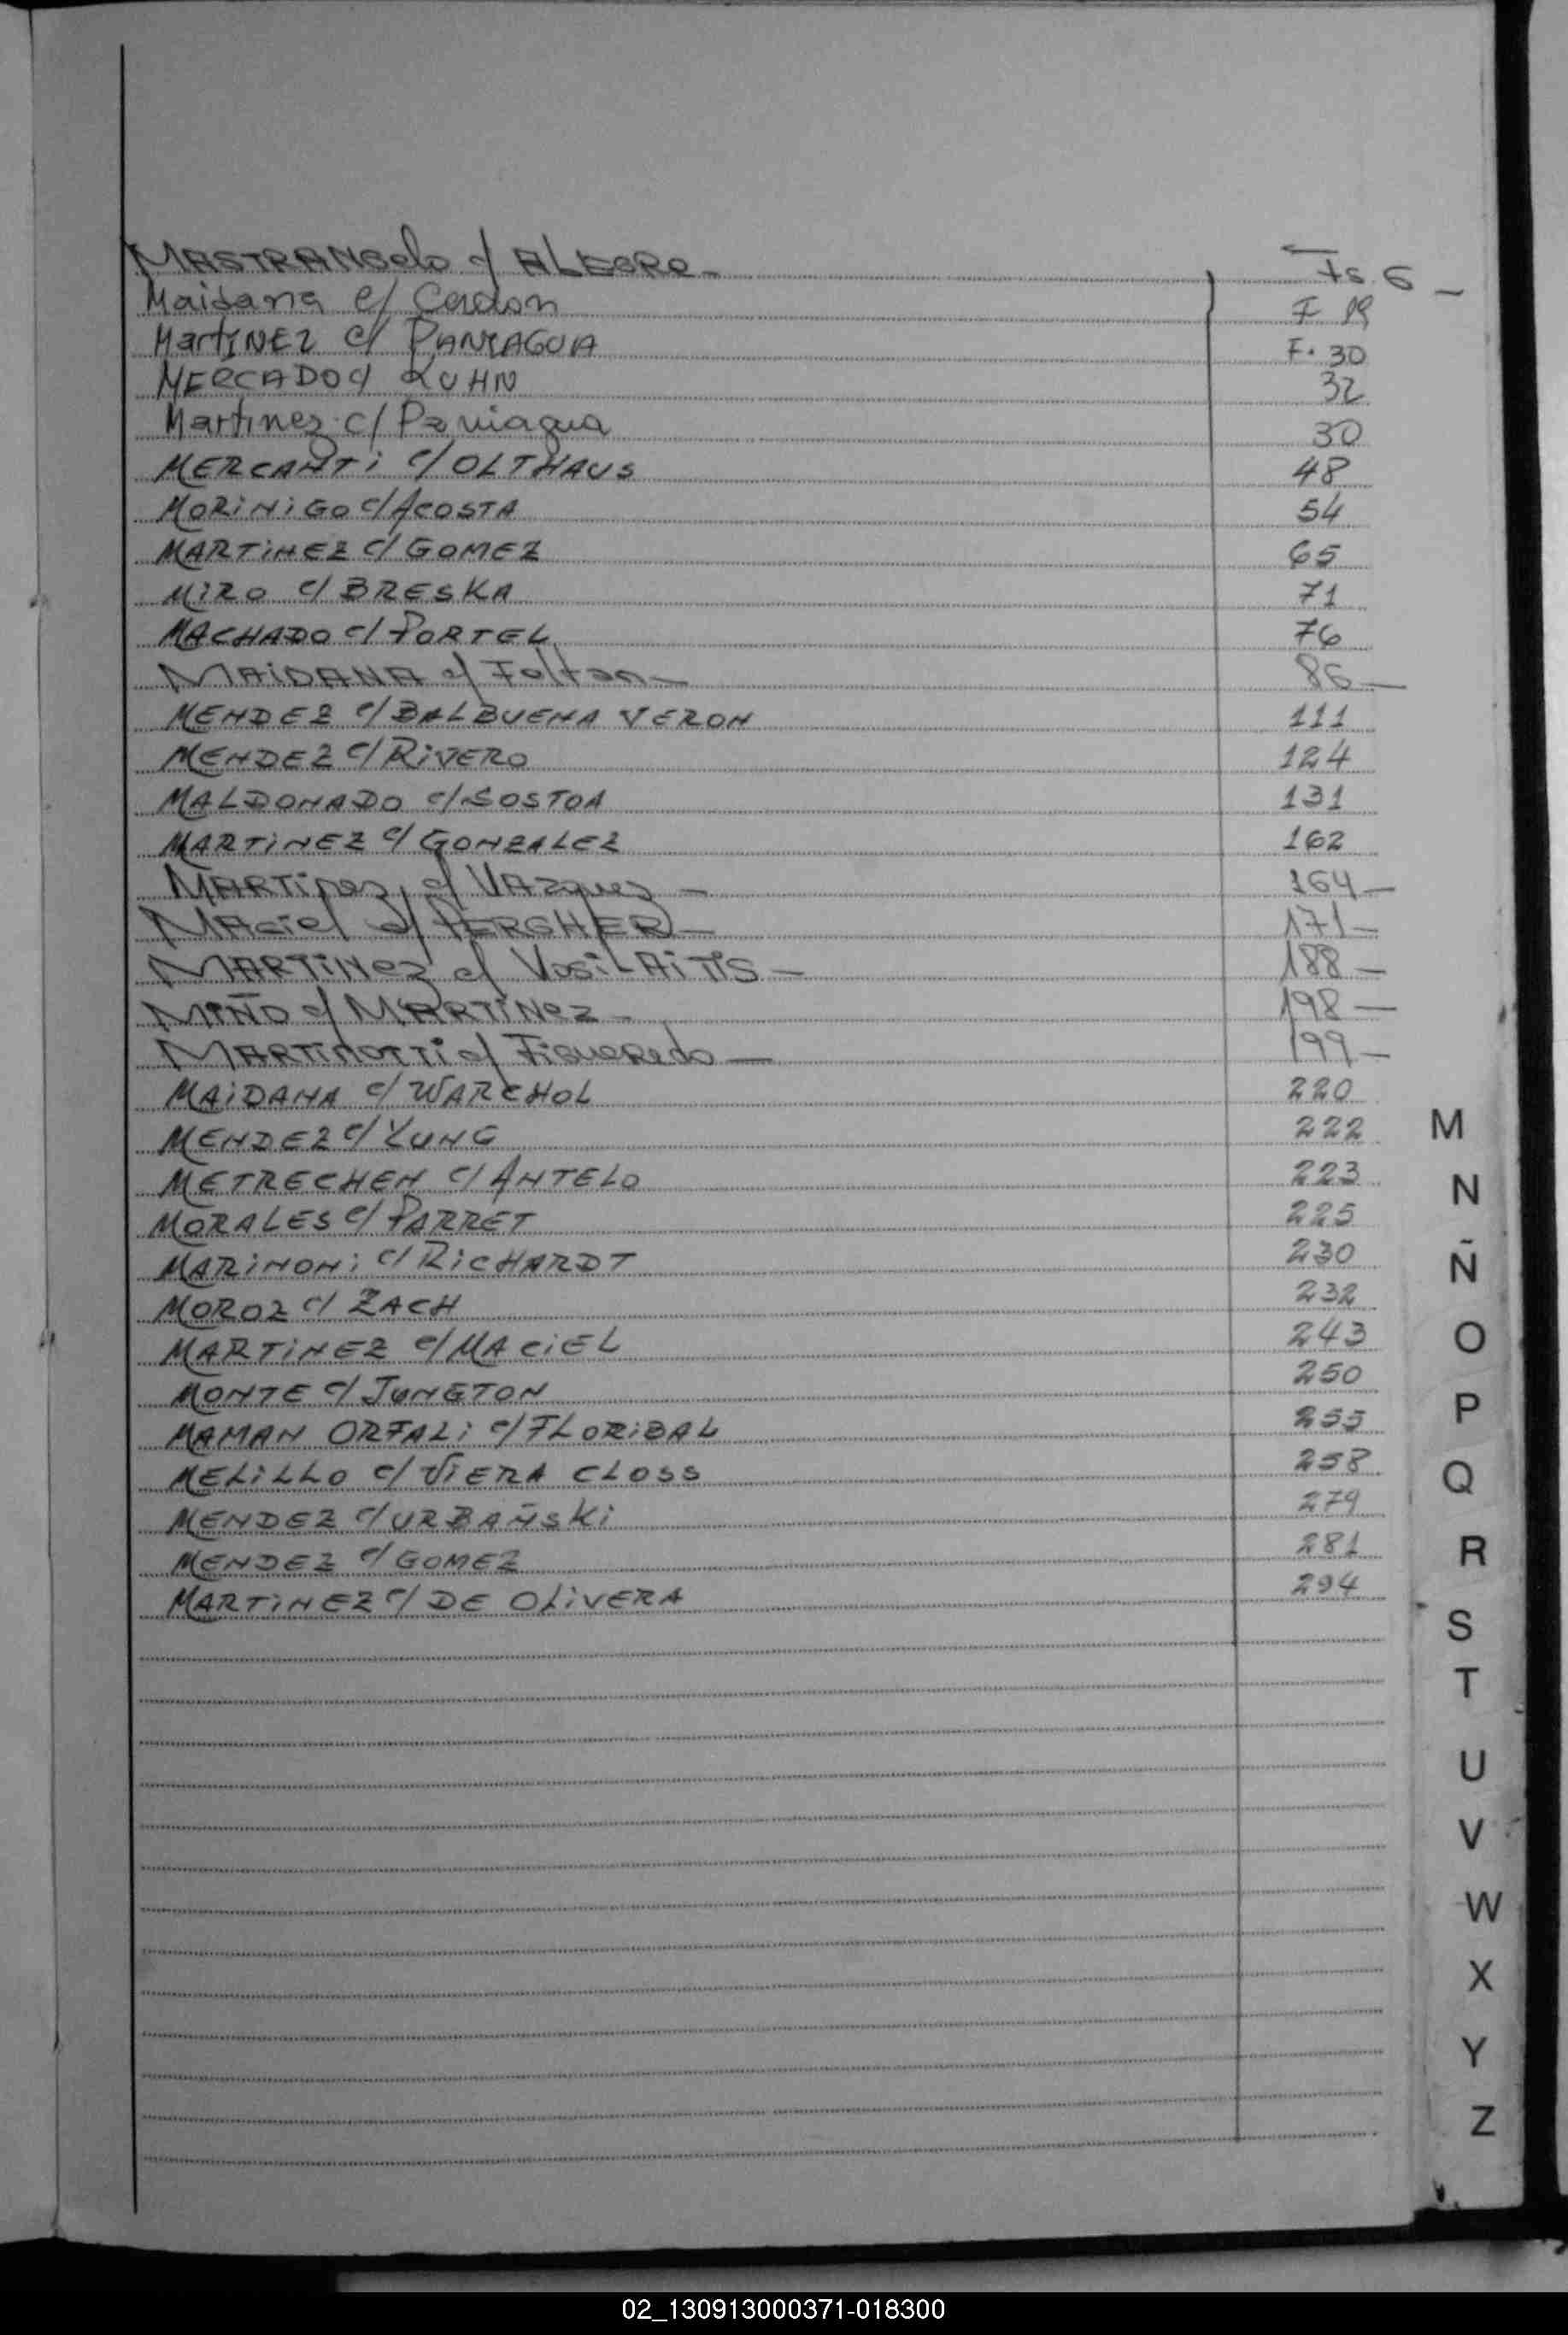 MASTRANGelo c/ ALEGRE - Fs. 6 -
Maidana c/ Cardon F 19
MartINEZ c/ PANIAGUA F. 30
MERCADO c/ KUHN 32
Martinez c/ Paniagua 30
MERCANTi c/ OLTHAUS 48
MORiNiGO c/ ACOSTA 54
MARTiNEZ c/ GOMEZ 65
MiRO c/ BRESKA 71
MACHADO c/ PORTEL 76
MAiDANA c/ Foltan - 86 -
MENDEZ c/ BALBUENA VERON 111
MENDEZ c/ RiVERO 124
MALDONADO c/ SOSTOA 131
MARTiNEZ c/ GONZALEZ 162
MARTinez c/ VAZquez - 164 -
MAciel c/ PERGHER - 171 -
MARTiNez c/ VasiLAiTIS - 188 -
MIÑO c/ MARTiNez - 198 -
MARTINOTTi c/ FiGueRedo - 199 -
MAiDANA c/ WARCHOL 220
MENDEZ c/ YUNG 222
METRECHEN c/ ANTELO 223
MORALES c/ PARRET 225
MARiNONi c/ RiCHARDT 230
MOROZ c/ ZACH 232
MARTiNEZ c/ MACiEL 243
MONTE c/ JUNGTON 250
MAMAN ORFALi c/ FLORiBAL 255
MELiLLO c/ ViERA CLOSS 258
MENDEZ c/ URBAÑSKi 279
MENDEZ c/ GOMEZ 281
MARTiNEZ c/ DE OLiVERA 294
M
N
Ñ
O
P
Q
R
S
T
U
V
W
X
Y
Z
02_130913000371-018300